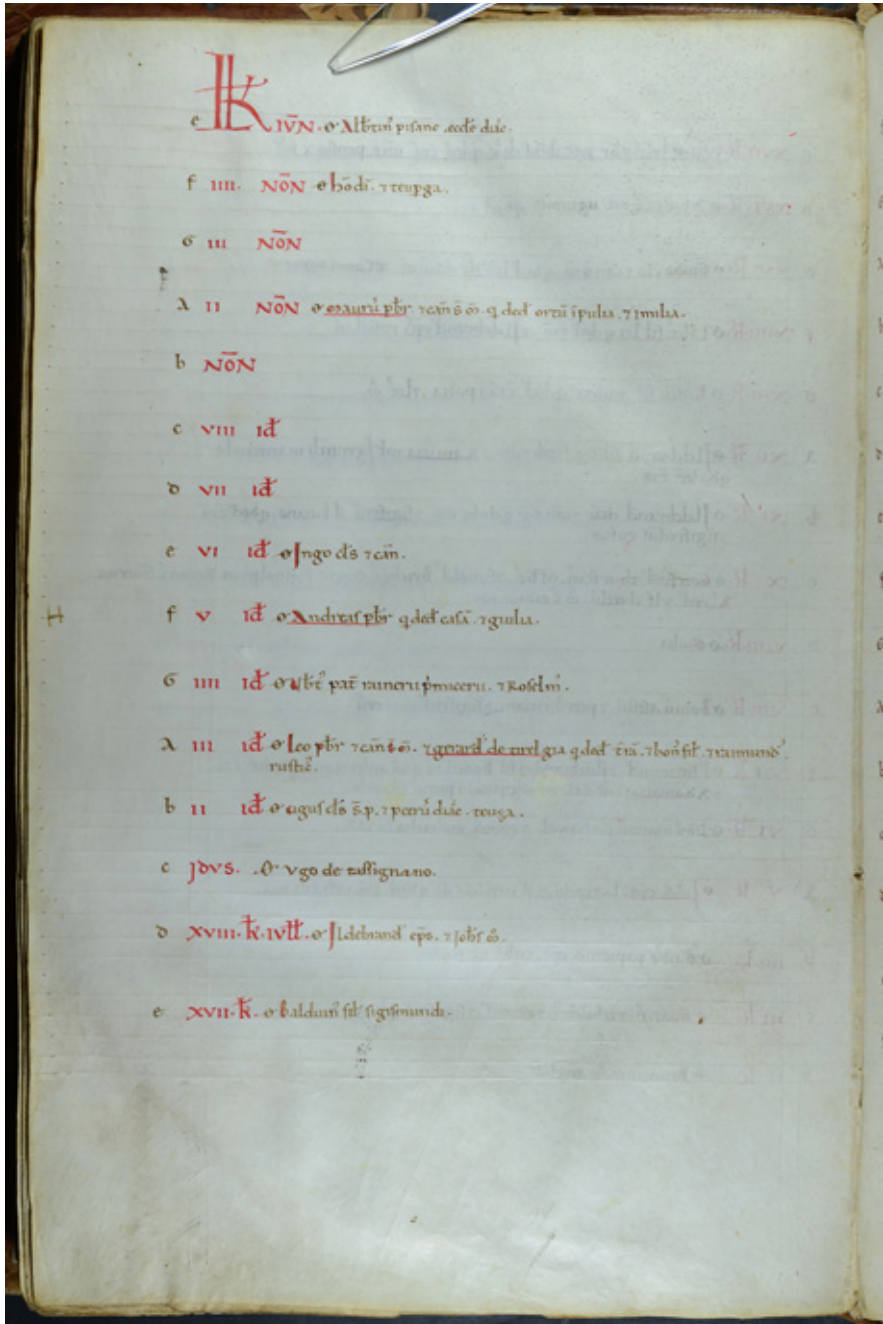 e K IVN̄. o Alb̄tin᷒ pisane eccl̄e diac̄.
f IIII. NŌN o h̄odi. ⁊ teupga.
G III NŌN
A II NŌN o Maurū p̄br ⁊ can̄ s̄ m̄. q ded̄ ortū ī pulia. ⁊ Imilia.
b NŌN
c VIII Id̄
d VII Id̄
e VI Id̄ o Ingo cl̄s ⁊ can̄.
f V Id̄ o Andreas p̄br q ded̄ casā. ⁊ guilia.
G IIII Id̄ o Ub̄t᷒ pat̄ rainerii p̄micerii. ⁊ Roselm᷒.
A III Id̄ o Leo p̄br ⁊ can̄ s̄ m̄. ⁊ gerard᷒ de q ded̄ t̄rā. ⁊ bon᷒ fil̄. ⁊ raimund᷒
rustic᷒.
b II Id̄ o agus cl̄s s̄. p. ⁊ petrū diac̄. teuga.
c IDVS. O Vgo de tassignano.
d XVIII. k̄. IVl̄l̄. o Ildebrand᷒ ep̄s. ⁊ Joh̄s m̄.
e XVII. k̄. o balduin᷒ fil̄ sigismundi.
H